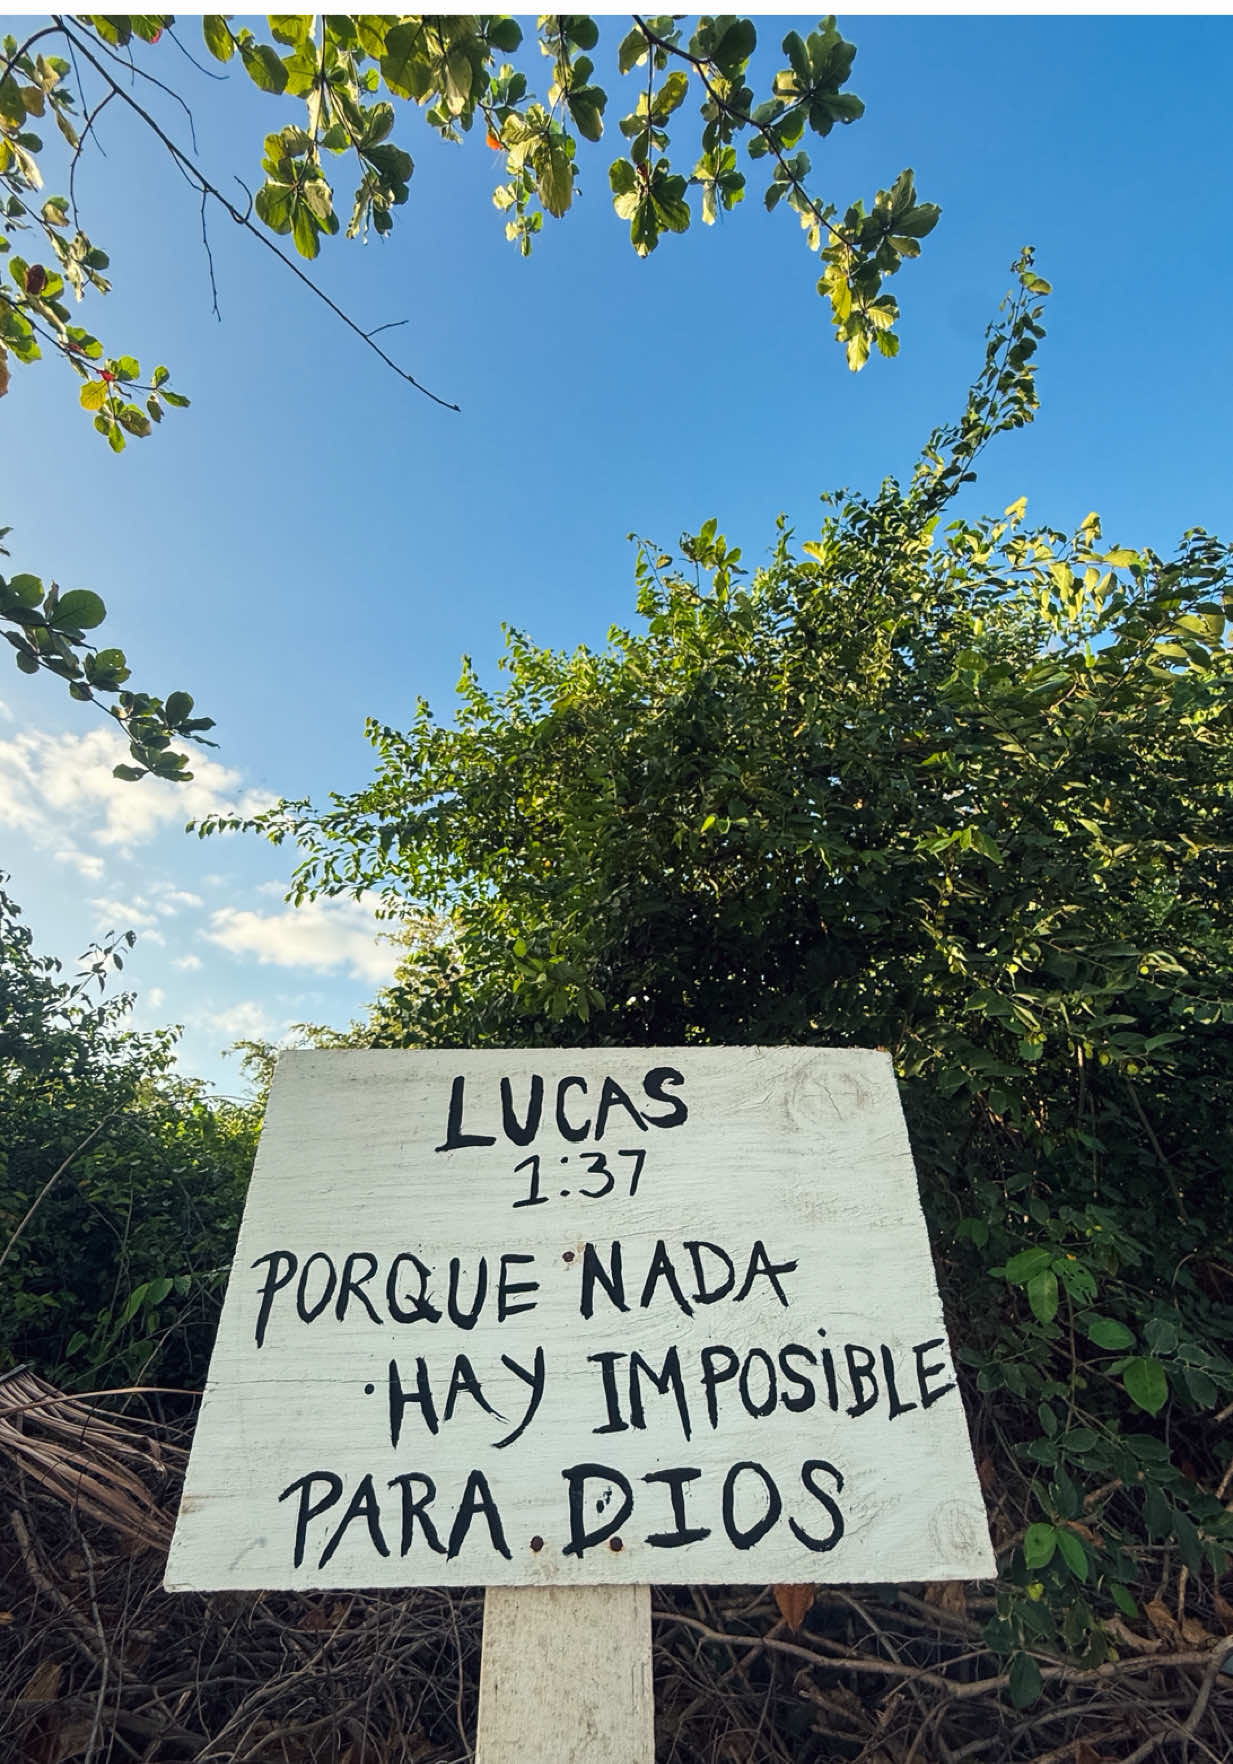 LUCAS
1:37
PORQUE NADA
HAY IMPOSiBLE
PARA DIOS